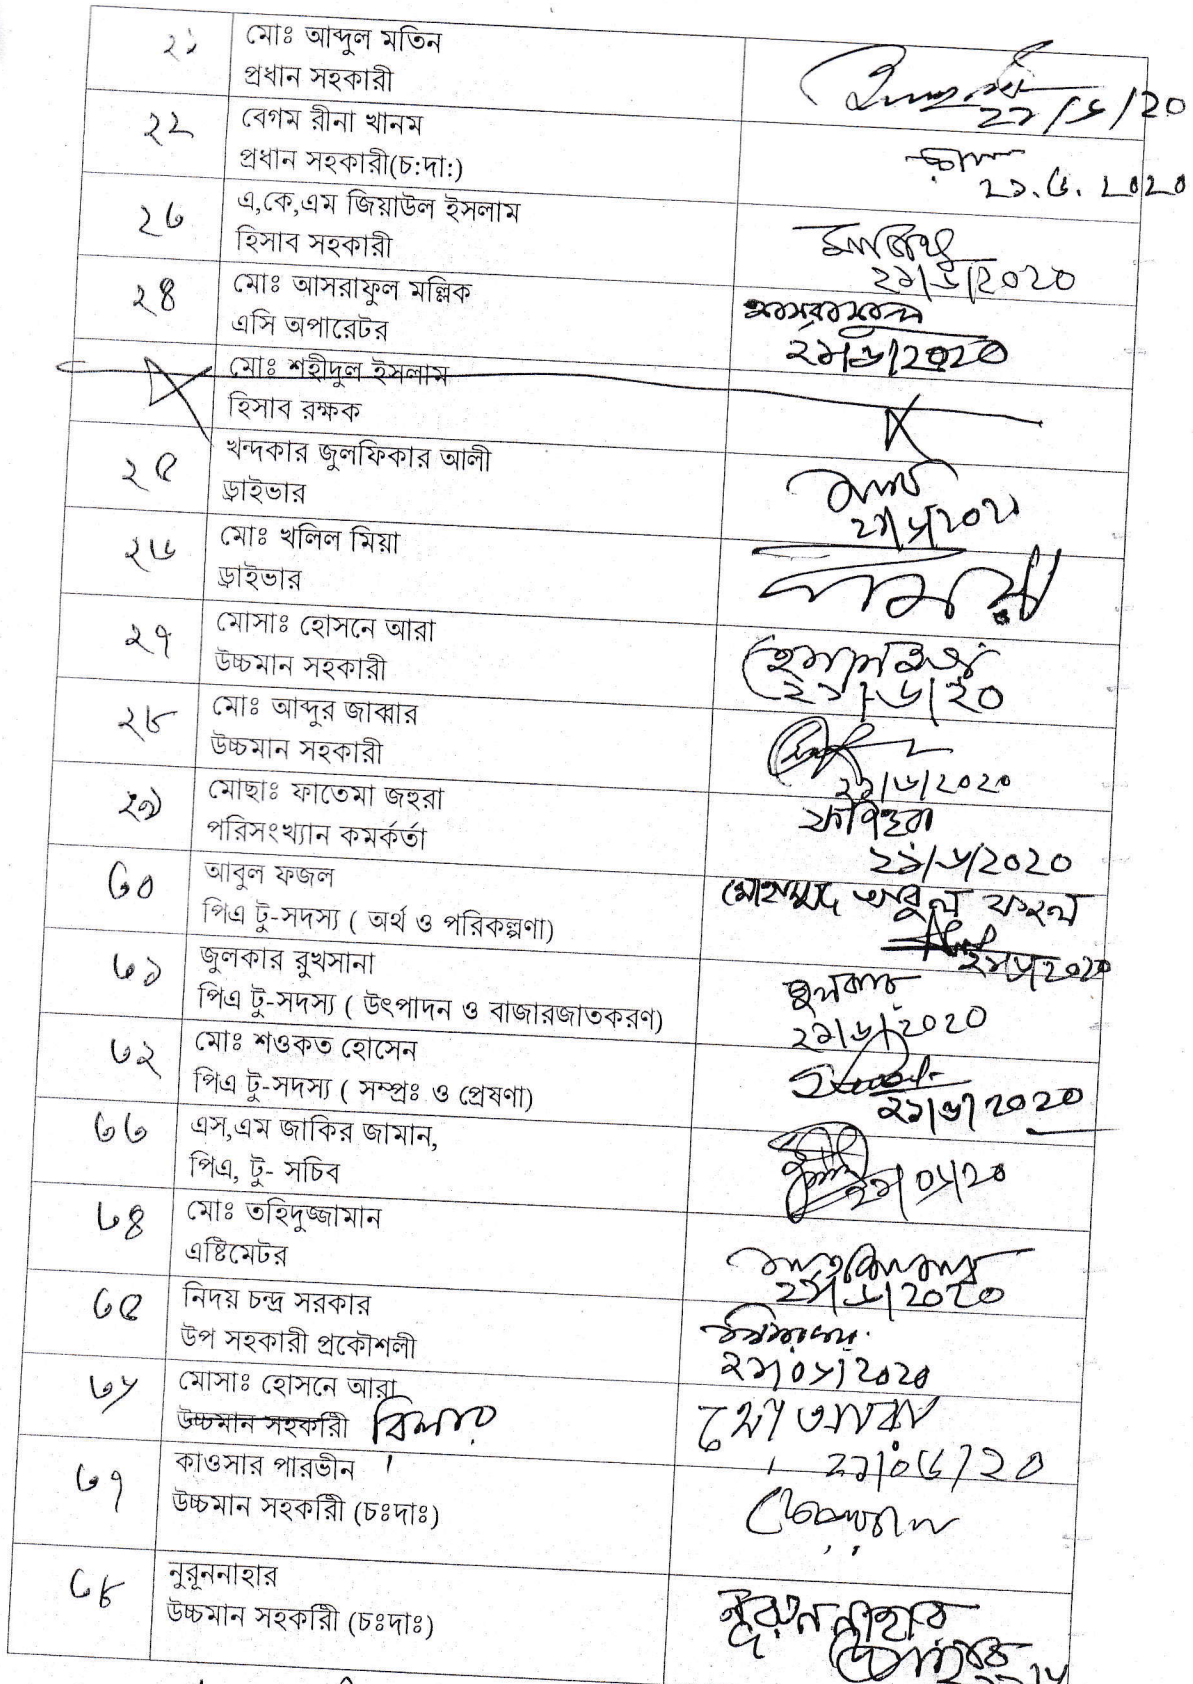 ২১
মোঃ আব্দুল মতিন
প্রধান সহকারী
২১/৬/২০
২২
বেগম রীনা খানম
প্রধান সহকারী(চ:দা:)
২১.৬.২০২০
২৩
এ,কে,এম জিয়াউল ইসলাম
হিসাব সহকারী
২১/৬/২০২০
২৪
মোঃ আসরাফুল মল্লিক
এসি অপারেটর
২১/৬/২০২০
মোঃ শহীদুল ইসলাম
হিসাব রক্ষক
২৫
খন্দকার জুলফিকার আলী
ড্রাইভার
২১/৬/২০২০
২৬
মোঃ খলিল মিয়া
ড্রাইভার
২৭
মোসাঃ হোসনে আরা
উচ্চমান সহকারী
২১/৬/২০
২৮
মোঃ আব্দুর জাব্বার
উচ্চমান সহকারী
২১/৬/২০২০
২৯
মোছাঃ ফাতেমা জহুরা
পরিসংখ্যান কমর্কর্তা
২১/৬/২০২০
৩০
আবুল ফজল
পিএ টু-সদস্য ( অর্থ ও পরিকল্পণা)
মোহাম্মদ আবুল ফজল
২১/৬/২০২০
৩১
জুলকার রুখসানা
পিএ টু-সদস্য ( উৎপাদন ও বাজারজাতকরণ)
২১/৬/২০২০
৩২
মোঃ শওকত হোসেন
পিএ টু-সদস্য ( সম্প্রঃ ও প্রেষণা)
২১/৬/২০২০
৩৩
এস,এম জাকির জামান,
পিএ, টু- সচিব
২১/০৬/২০
৩৪
মোঃ তহিদুজ্জামান
এষ্টিমেটর
২১/৬/২০২০
৩৫
নিদয় চন্দ্র সরকার
উপ সহকারী প্রকৌশলী
২১/০৬/২০২০
৩৬
মোসাঃ হোসনে আরা
উচ্চমান সহকারিী
২১/০৬/২০
৩৭
কাওসার পারভীন
উচ্চমান সহকারিী (চঃদাঃ)
৩৮
নুরূননাহার
উচ্চমান সহকারিী (চঃদাঃ)
নূরুন নাহার